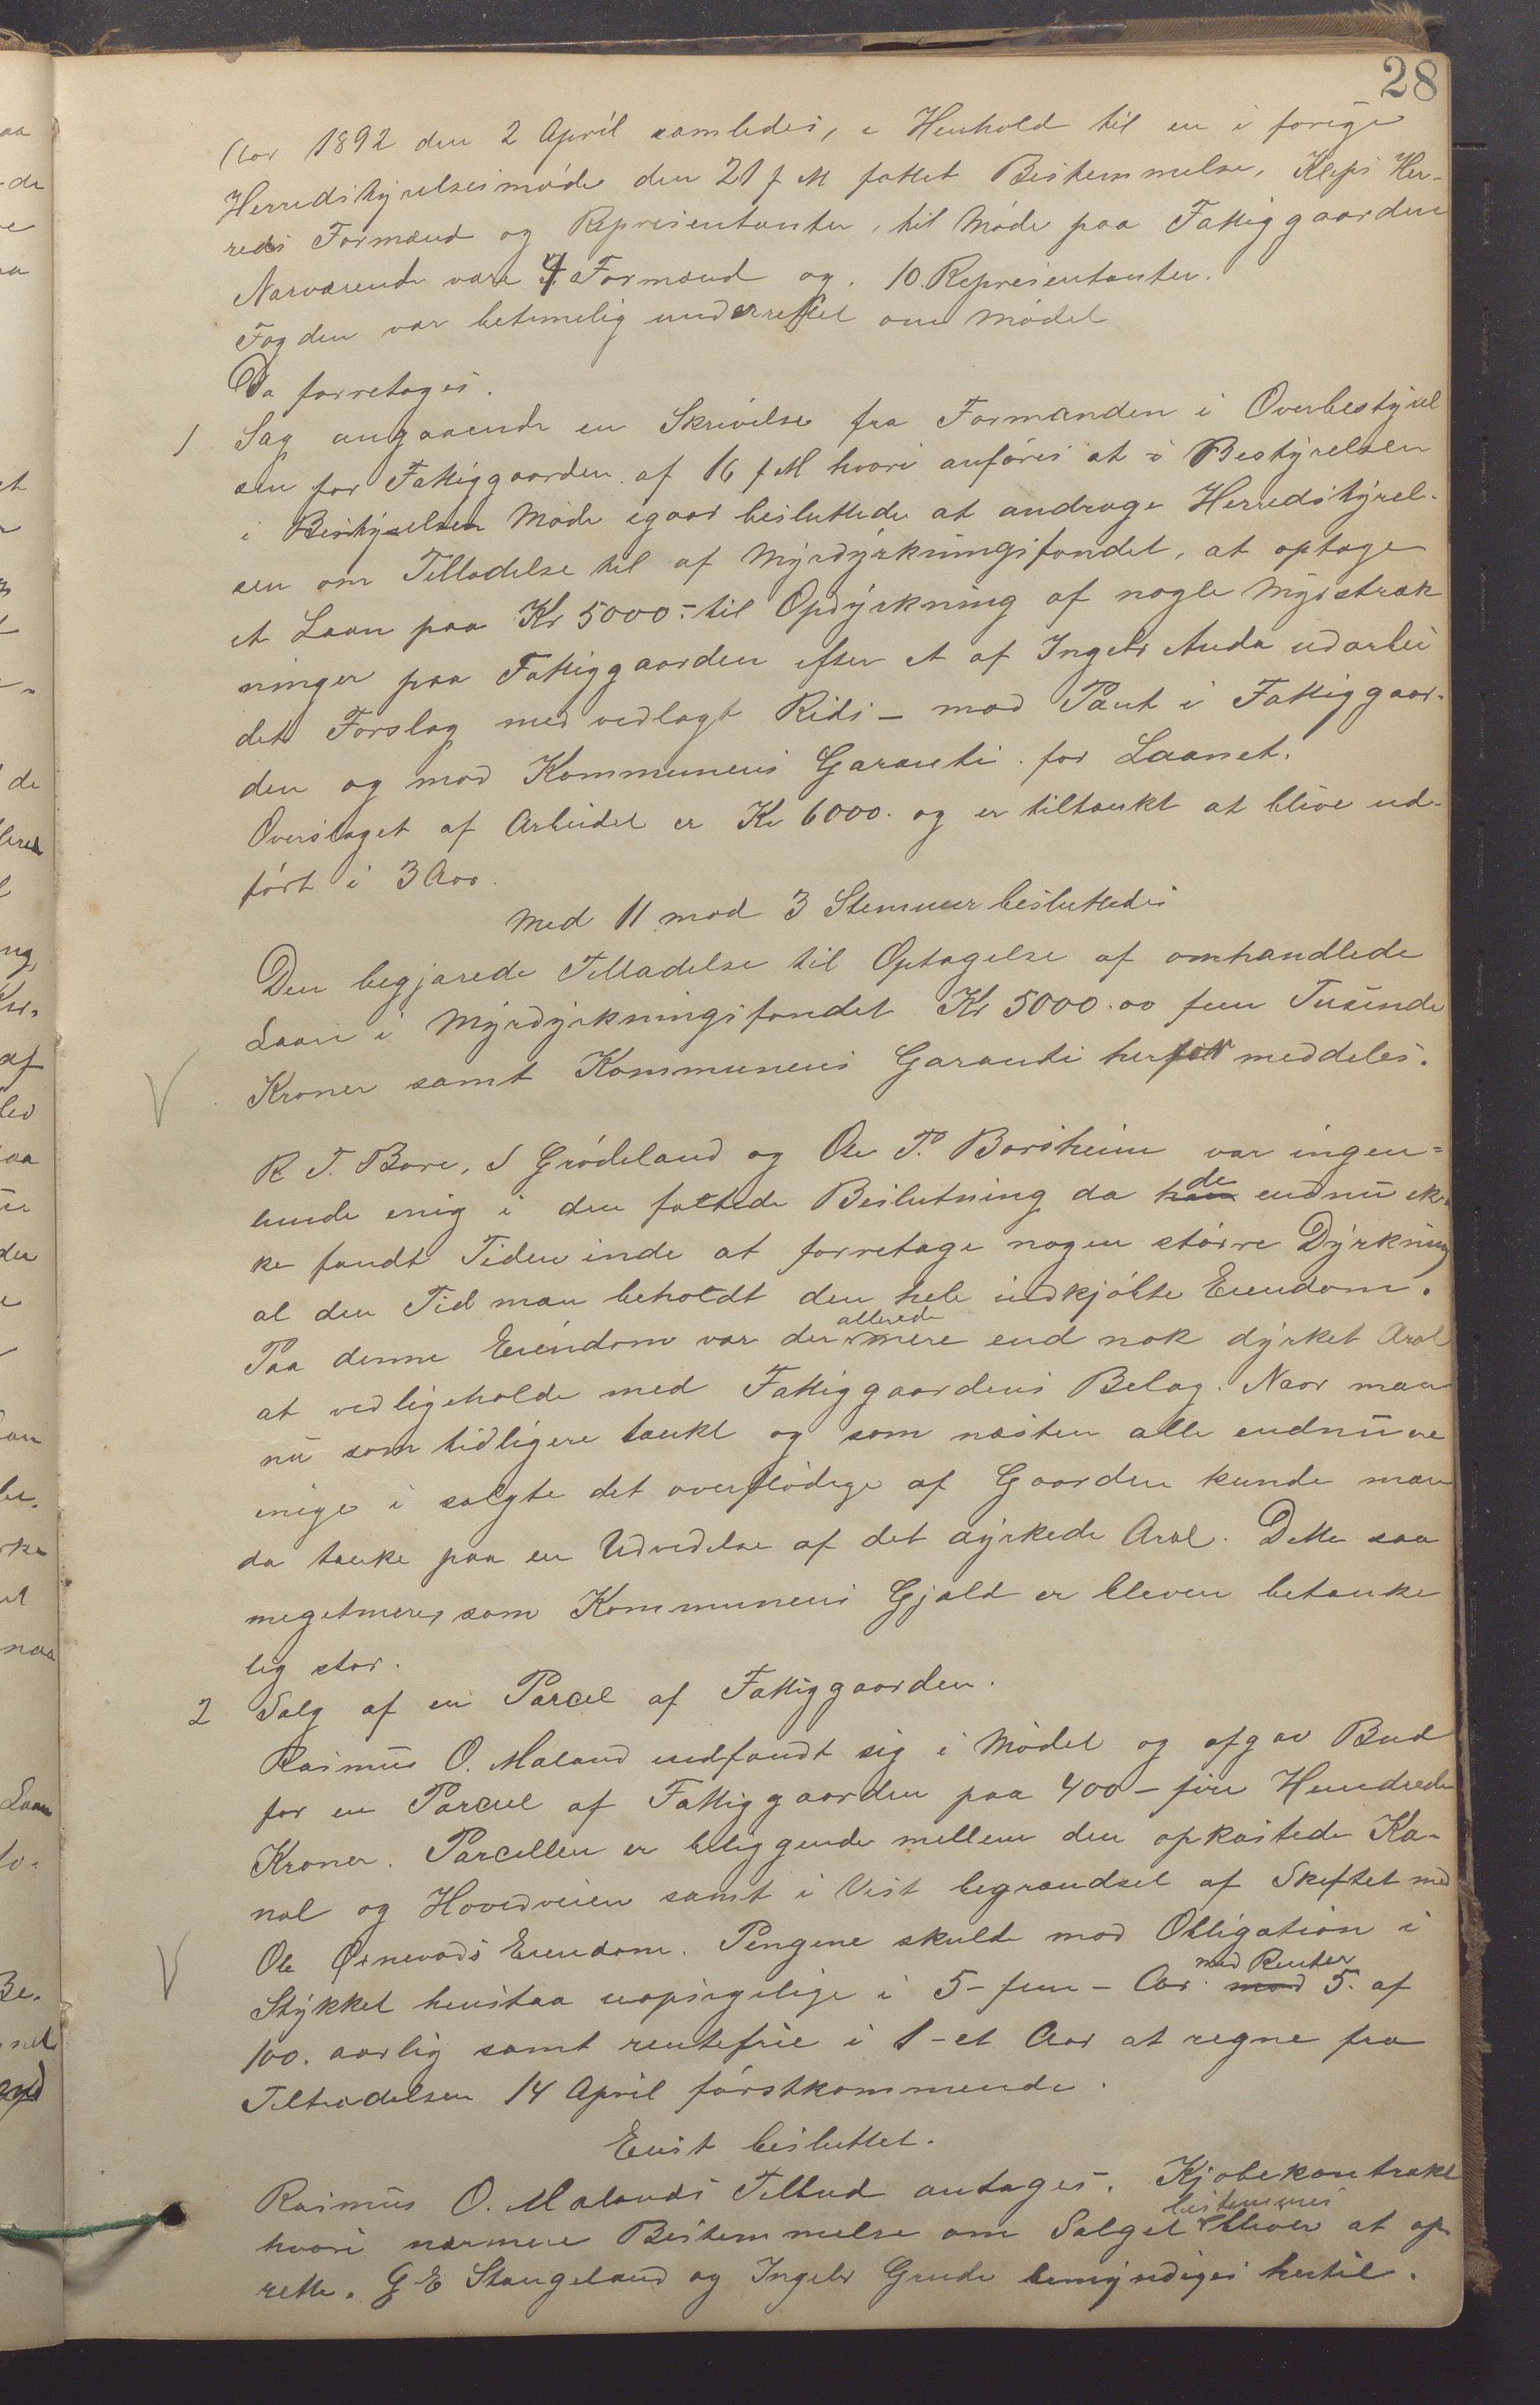 28
Aar 1892 den 2 April samledes, i Henhold til en i forige
Herredstyrelsesmøde den 21 f M fattet Bestemmelse, Kleps Her-
reds Formænd og Repræsentanter, til Møde paa Fattiggaarden
Nærværende vare 4 Formænd og 10 Repræsentanter.
Fogden var betimelig underrettet om Mødet
Da foretoges.
1 Sag angaaende en Skrivelse fra Formanden i Overbestyrel
sen for Fattiggaarden af 16 f M hvori anføres at i Bestyrelsen
i Bestyrelsen Møde igaar besluttede at andrage Herredstyrel-
sen om Tilladelse til af Myrdyrkningsfondet, at optage
et Laan paa Kr 5000.- til Opdyrkning af nogle Myrstræk
ninger paa Fattiggaarden efter et af Ingebr Anda udarbei
det Forslag med vedlagt Rids - mod Pant i Fattiggaar-
den og mod Kommunens Garanti for Laanet.
Overslaget af Arbeidet er Kr 6000. og er tiltænkt at blive ud-
ført i 3 Aar.
Med 11 mod 3 Stemmer besluttedes
Den begjærede Tilladelse til Optagelse af omhandlede
Laan i Myrdyrkningsfondet Kr 5000.00 fem Tusinde
Kroner samt Kommunens Garanti herfor meddeles.
R T. Bore, S Grødeland og Ole P. Borsheim var ingen-
lunde enig i den fattede Beslutning da han de endnu ik-
ke fandt Tiden inde at foretage nogen større Dyrkning
al den Tid man beholdt den hele indkjøbte Eiendom.
Paa denne Eiendom var der allerede mere end nok dyrket Aral
at vedligeholde med Fattiggaardens Belæg. Naar man
nu som tidligere tænkt og som næsten alle endnu ere
enige i solgte det overflødige af Gaarden kunde man
da tænke paa en Udvidelse af det dyrkede Aral. Dette saa
megetmere, som Kommunens Gjæld er bleven betænke
lig stor.
2 Salg af en Parcel af Fattiggaarden.
Rasmus O. Maland indfandt sig i Mødet og afgav Bud
for en Parcel af Fattiggaarden paa 400 - fire Hundrede
Kroner. Parcellen er beliggende mellem den opkastede Ka-
nal og Hovedveien samt i Vest begrændset af Skiftet med
Ole Ørnevads Eiendom. Pengene skulde mod Obligation i
Stykket henstaa uopsigelige i 5 - fem - Aar mod med Renter 5. af
100. aarlig samt rentefrie i 1 - et Aar at regne fra
Tiltrædelsen 14 April førstkommende.
Enst besluttet.
Rasmus O. Malands Tilbud antages. Kjøbekontrakt
hvori nærmere Bestemmelse om Salget bestemmes bliver at op-
rette. G E Stangeland og Ingebr Grude bemyndiges hertil.